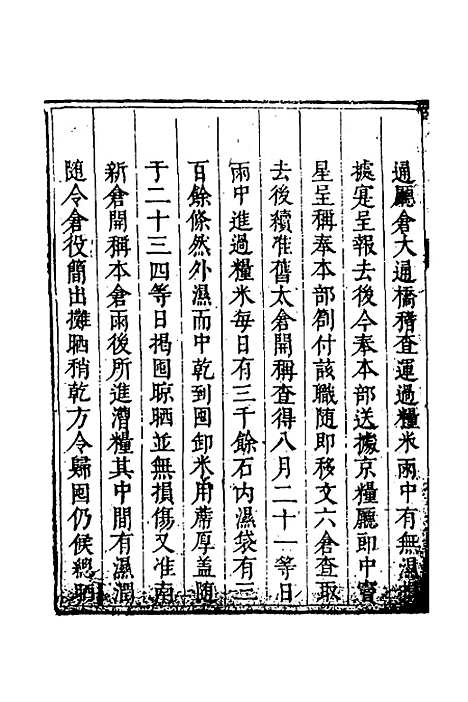 通廳倉大通橋稽查運過糧米雨中有無濕
據寔呈報去後今奉本部送據京糧廳即中竇
星呈稱奉本部劄付該職隨即移文六倉查取
去後續准舊太倉開稱查得八月二十一等日
雨中進過糧米每日有三千餘石內濕袋有三
百餘條然外濕而中乾到囤卸米用蓆厚盖随
于二十三四等日揭囤晾晒並無損傷又准南
新倉開稱本倉雨後所進漕糧其中間有濕潤
隨令倉役簡出攤晒稍乾方令歸囤仍候總晒